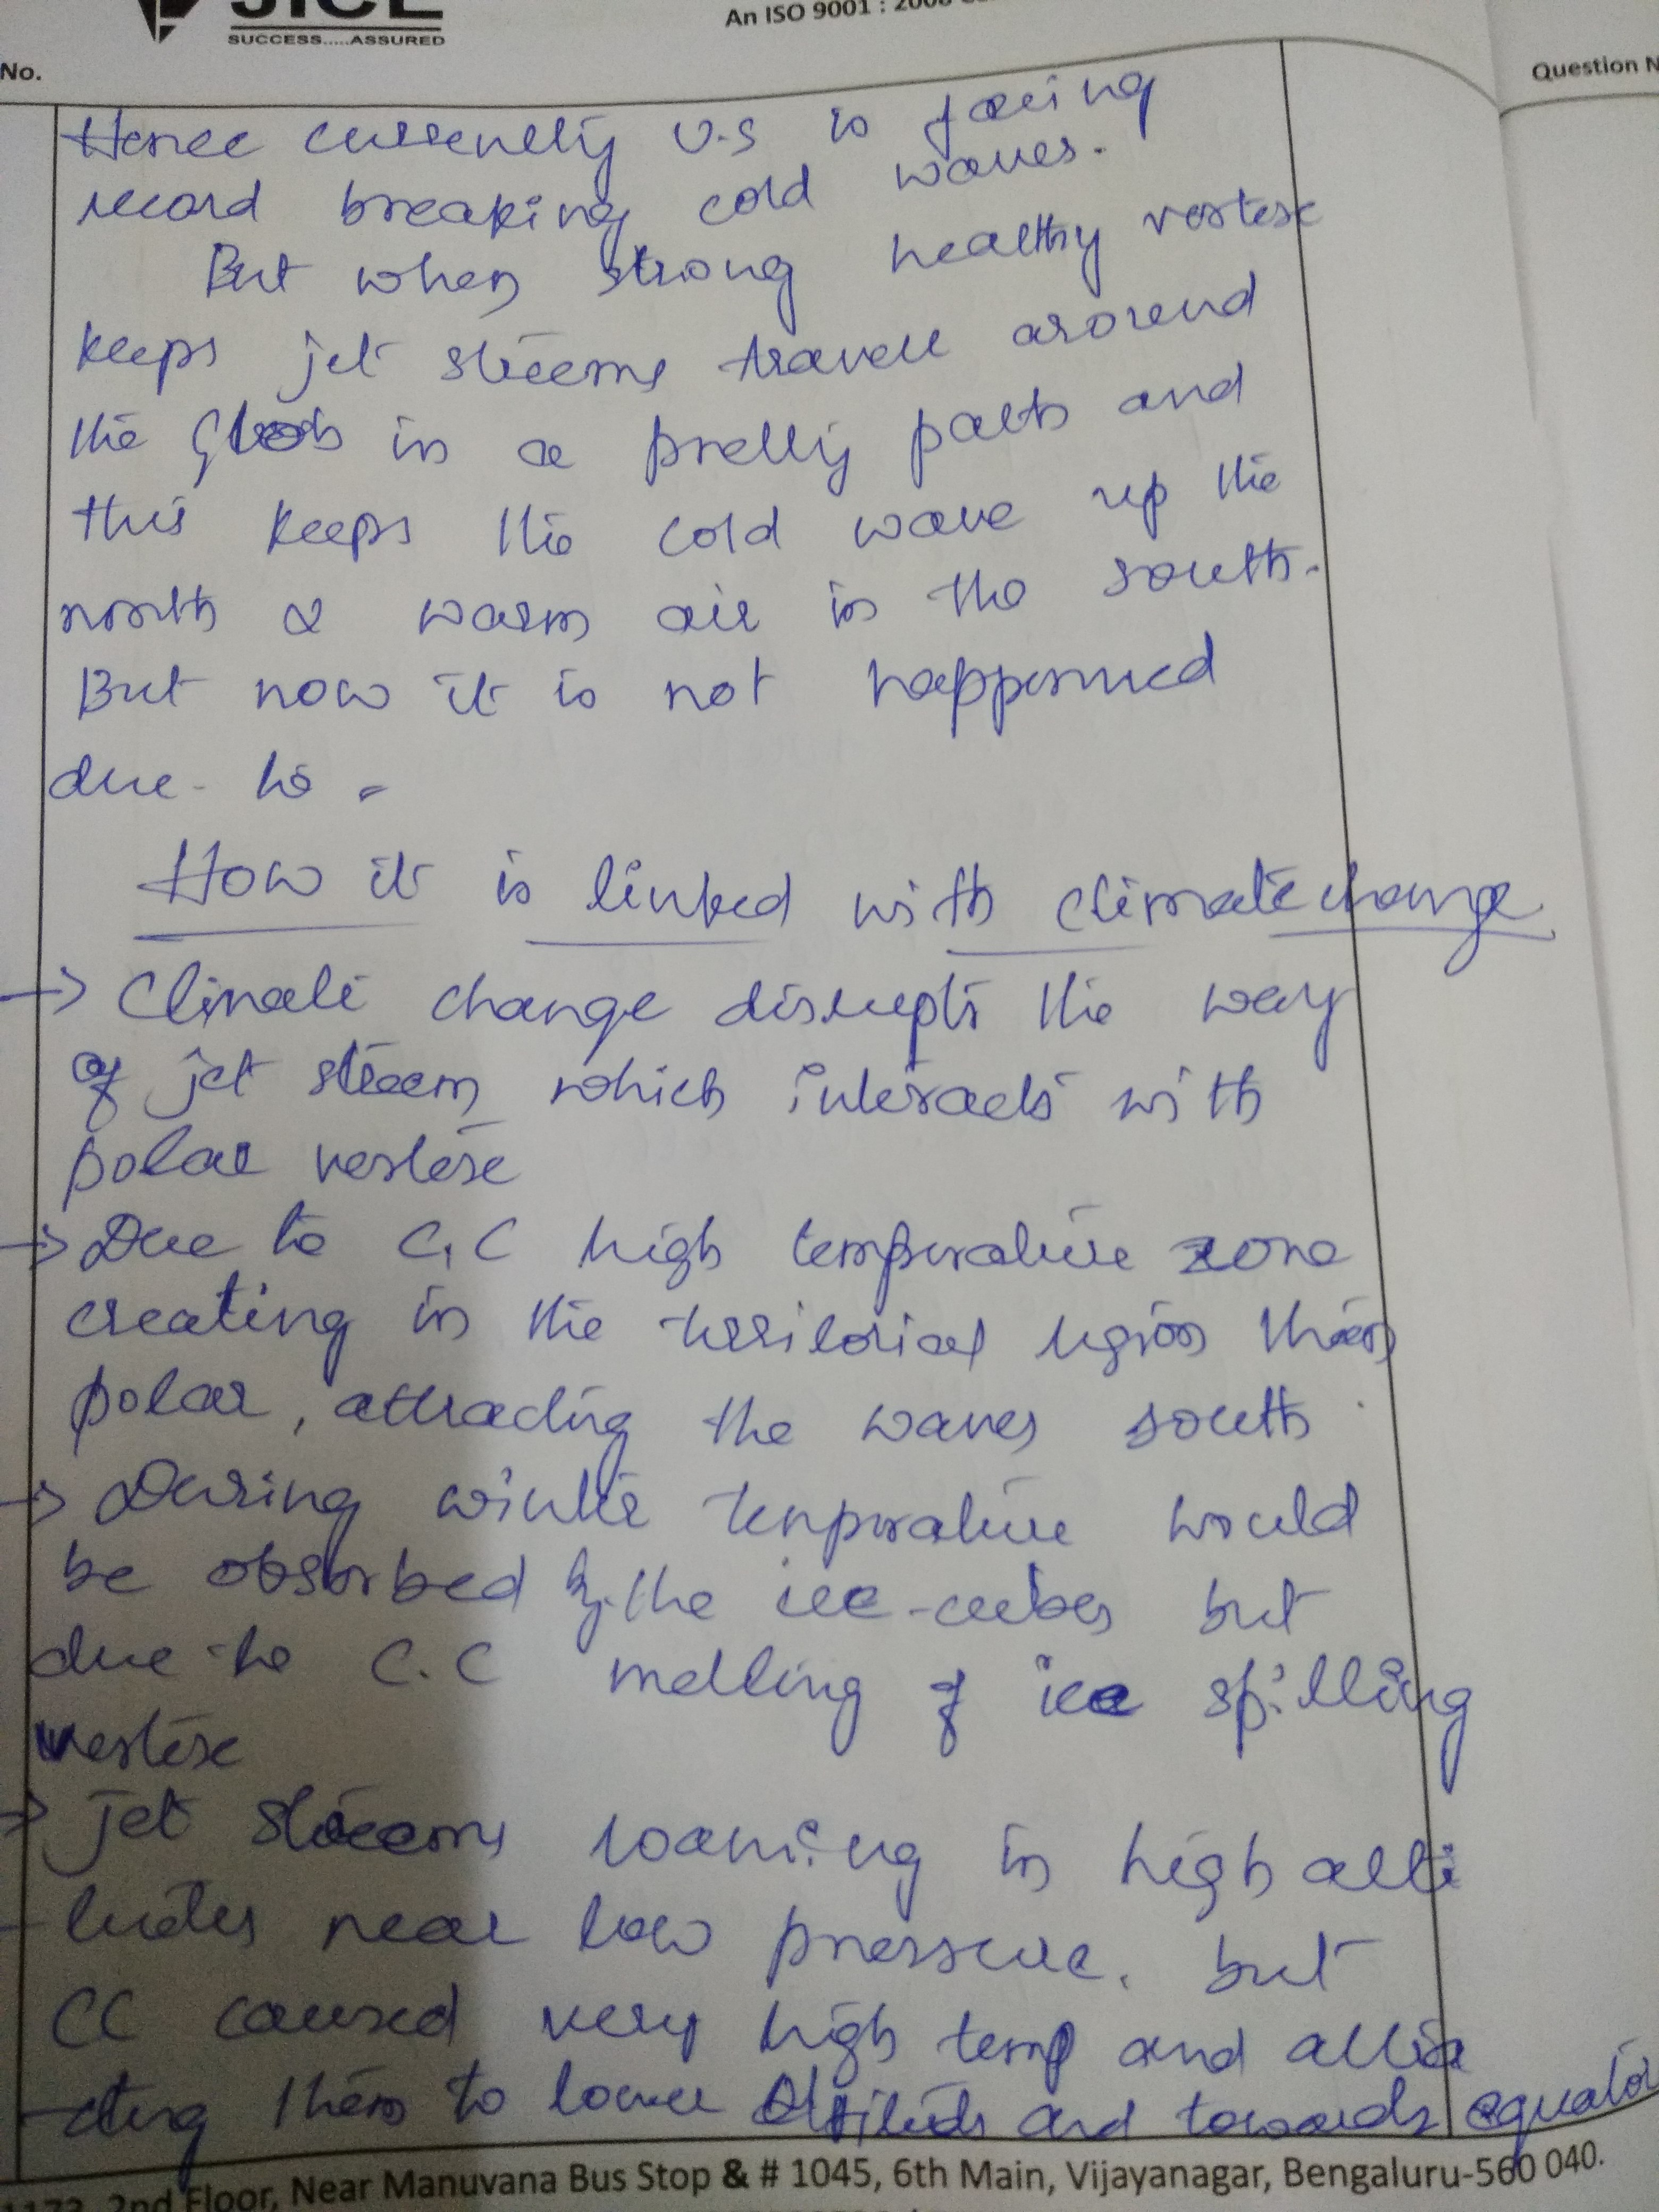 JICE
SUCCESS.....ASSURED
An ISO 9001 : 2008
No.
Question N
Hence currently U.S is facing
record breaking cold waves.
But when strong healthy vortex
keeps jet streems travell around
the Glob in a pretty path and
this keeps the cold wave up the
north & warm air in the south.
But now it is not happenned
due to -
How it is linked with climate change
→ Climate change disrupts the way
of jet streem which interacts with
polar vortex
→ Due to C.C high temperature zone
creating in the territorial region than
polar, attracting the waves south.
→ During winter temperature would
be obsorbed by the ice-cubes but
due to C.C melting of ice spilling
vortex
→ jet streems roaming in high alti
-tudes near low pressure. but
CC caused very high temp and attra
-cting them to lower altitudes and towards equator
1173, 2nd Floor, Near Manuvana Bus Stop & # 1045, 6th Main, Vijayanagar, Bengaluru-560 040.